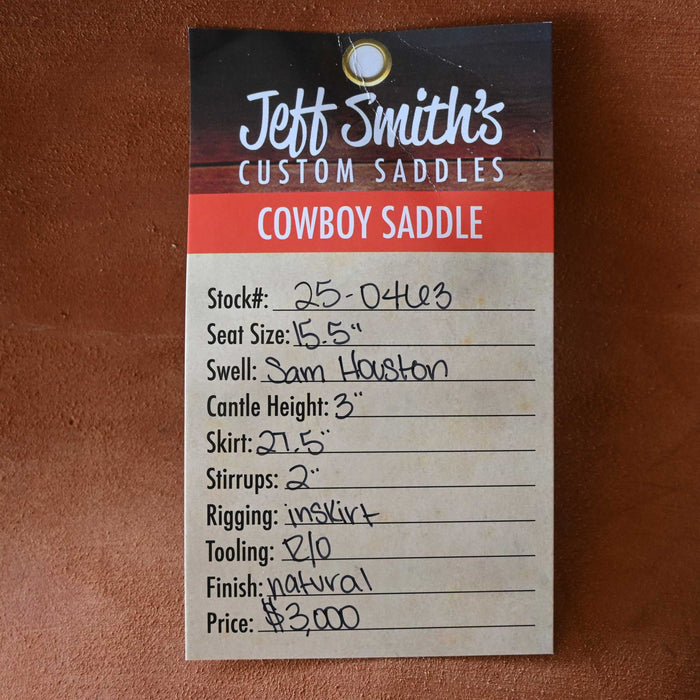 Jeff Smith's
CUSTOM SADDLES
COWBOY SADDLE
Stock#: 25-0463
Seat Size: 15.5"
Swell: Sam Houston
Cantle Height: 3"
Skirt: 27.5"
Stirrups: 2"
Rigging: inskirt
Tooling: R/O
Finish: natural
Price: $3,000